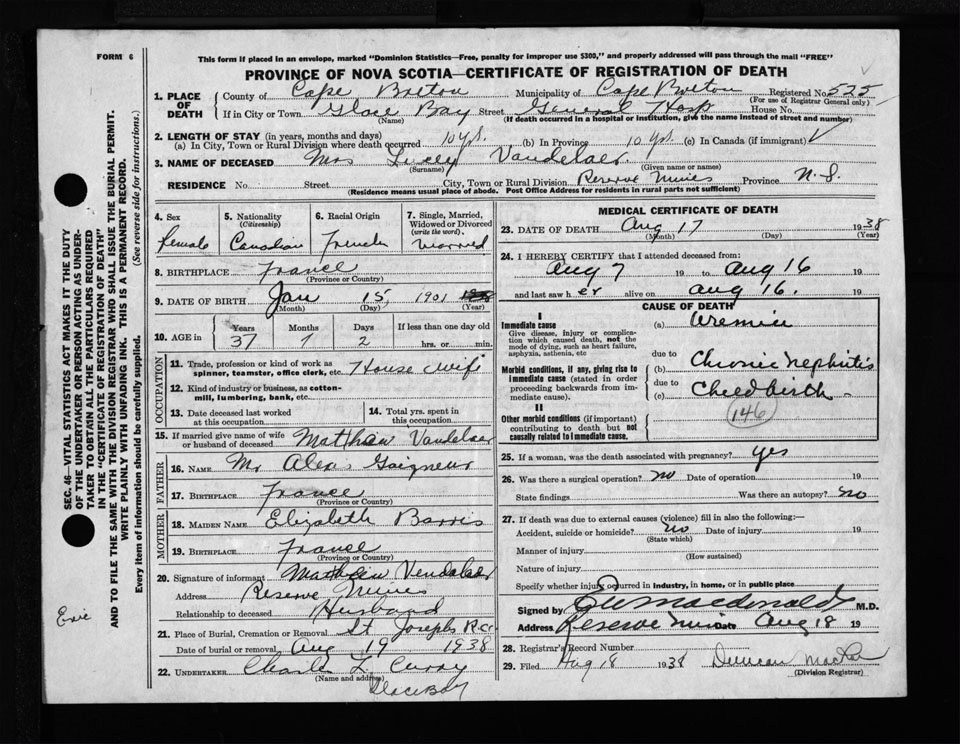 FORM 6
This form if placed in an envelope, marked "Dominion Statistics—Free, penalty for improper use $300," and properly addressed will pass through the mail "FREE"
PROVINCE OF NOVA SCOTIA—CERTIFICATE OF REGISTRATION OF DEATH
1. PLACE OF DEATH
County of Cape Breton Municipality of Cape Breton Registered No. 525
(For use of Registrar General only)
If in City or Town Glace Bay Street General Hosp House No.
(Name) (If death occurred in a hospital or institution, give the name instead of street and number)
2. LENGTH OF STAY (in years, months and days)
(a) In City, Town or Rural Division where death occurred 10 yrs. (b) In Province 10 yrs. (c) In Canada (if immigrant)
3. NAME OF DECEASED Mrs Vandelaer
(Surname) (Given name or names)
RESIDENCE No. Street City, Town or Rural Division Reserve Mines Province N.S.
(Residence means usual place of abode. Post Office Address for residents in rural parts not sufficient)
4. Sex Female
5. Nationality (Citizenship) Canadian
6. Racial Origin French
7. Single, Married, Widowed or Divorced (write the word) Married
8. BIRTHPLACE France
(Province or Country)
9. DATE OF BIRTH Jan 15 1901
(Month) (Day) (Year)
10. AGE in Years Months Days If less than one day old
37 7 2 hrs. or min.
OCCUPATION
11. Trade, profession or kind of work as spinner, teamster, office clerk, etc. House Wife
12. Kind of industry or business, as cotton-mill, lumbering, bank, etc.
13. Date deceased last worked at this occupation
14. Total yrs. spent in this occupation
15. If married give name of wife or husband of deceased Matthew Vandelaer
FATHER
16. NAME Mr Alex
17. BIRTHPLACE France
(Province or Country)
MOTHER
18. MAIDEN NAME Elizabeth Barris
19. BIRTHPLACE France
(Province or Country)
20. Signature of informant Matthew Vendelaer
Address Reserve Mines
Relationship to deceased Husband
21. Place of Burial, Cremation or Removal St Josephs
Date of burial or removal Aug 19 1938
22. UNDERTAKER Charles L. Curry
(Name and address)
Glace Bay
MEDICAL CERTIFICATE OF DEATH
23. DATE OF DEATH Aug 17 1938
(Month) (Day) (Year)
24. I HEREBY CERTIFY that I attended deceased from:
Aug 7 19 to Aug 16 19
and last saw her alive on Aug 16. 19
CAUSE OF DEATH
I
Immediate cause
Give disease, injury or complication which caused death, not the mode of dying, such as heart failure, asphyxia, asthenia, etc
(a) Uremia
Morbid conditions, if any, giving rise to immediate cause (stated in order proceeding backwards from immediate cause).
due to
(b) Chronic Nephritis
due to
(c) Child birth
146
II
Other morbid conditions (if important) contributing to death but not causally related to immediate cause.
25. If a woman, was the death associated with pregnancy? Yes
26. Was there a surgical operation? No Date of operation 19
State findings Was there an autopsy? No
27. If death was due to external causes (violence) fill in also the following:—
Accident, suicide or homicide? No Date of injury 19
(State which)
Manner of injury
(How sustained)
Nature of injury
Specify whether injury occurred in industry, in home, or in public place
Signed by Macdonald M.D.
Address Reserve Mines Date Aug 18 19
28. Registrar's Record Number
29. Filed Aug 18 1938 Duncan
(Division Registrar)
SEC. 46—VITAL STATISTICS ACT MAKES IT THE DUTY
OF THE UNDERTAKER OR PERSON ACTING AS UNDER-
TAKER TO OBTAIN ALL THE PARTICULARS REQUIRED
IN THE "CERTIFICATE OF REGISTRATION OF DEATH"
AND TO FILE THE SAME WITH THE DIVISION REGISTRAR WHO SHALL ISSUE THE BURIAL PERMIT.
WRITE PLAINLY WITH UNFADING INK. THIS IS A PERMANENT RECORD.
Every item of information should be carefully supplied. (See reverse side for instructions.)